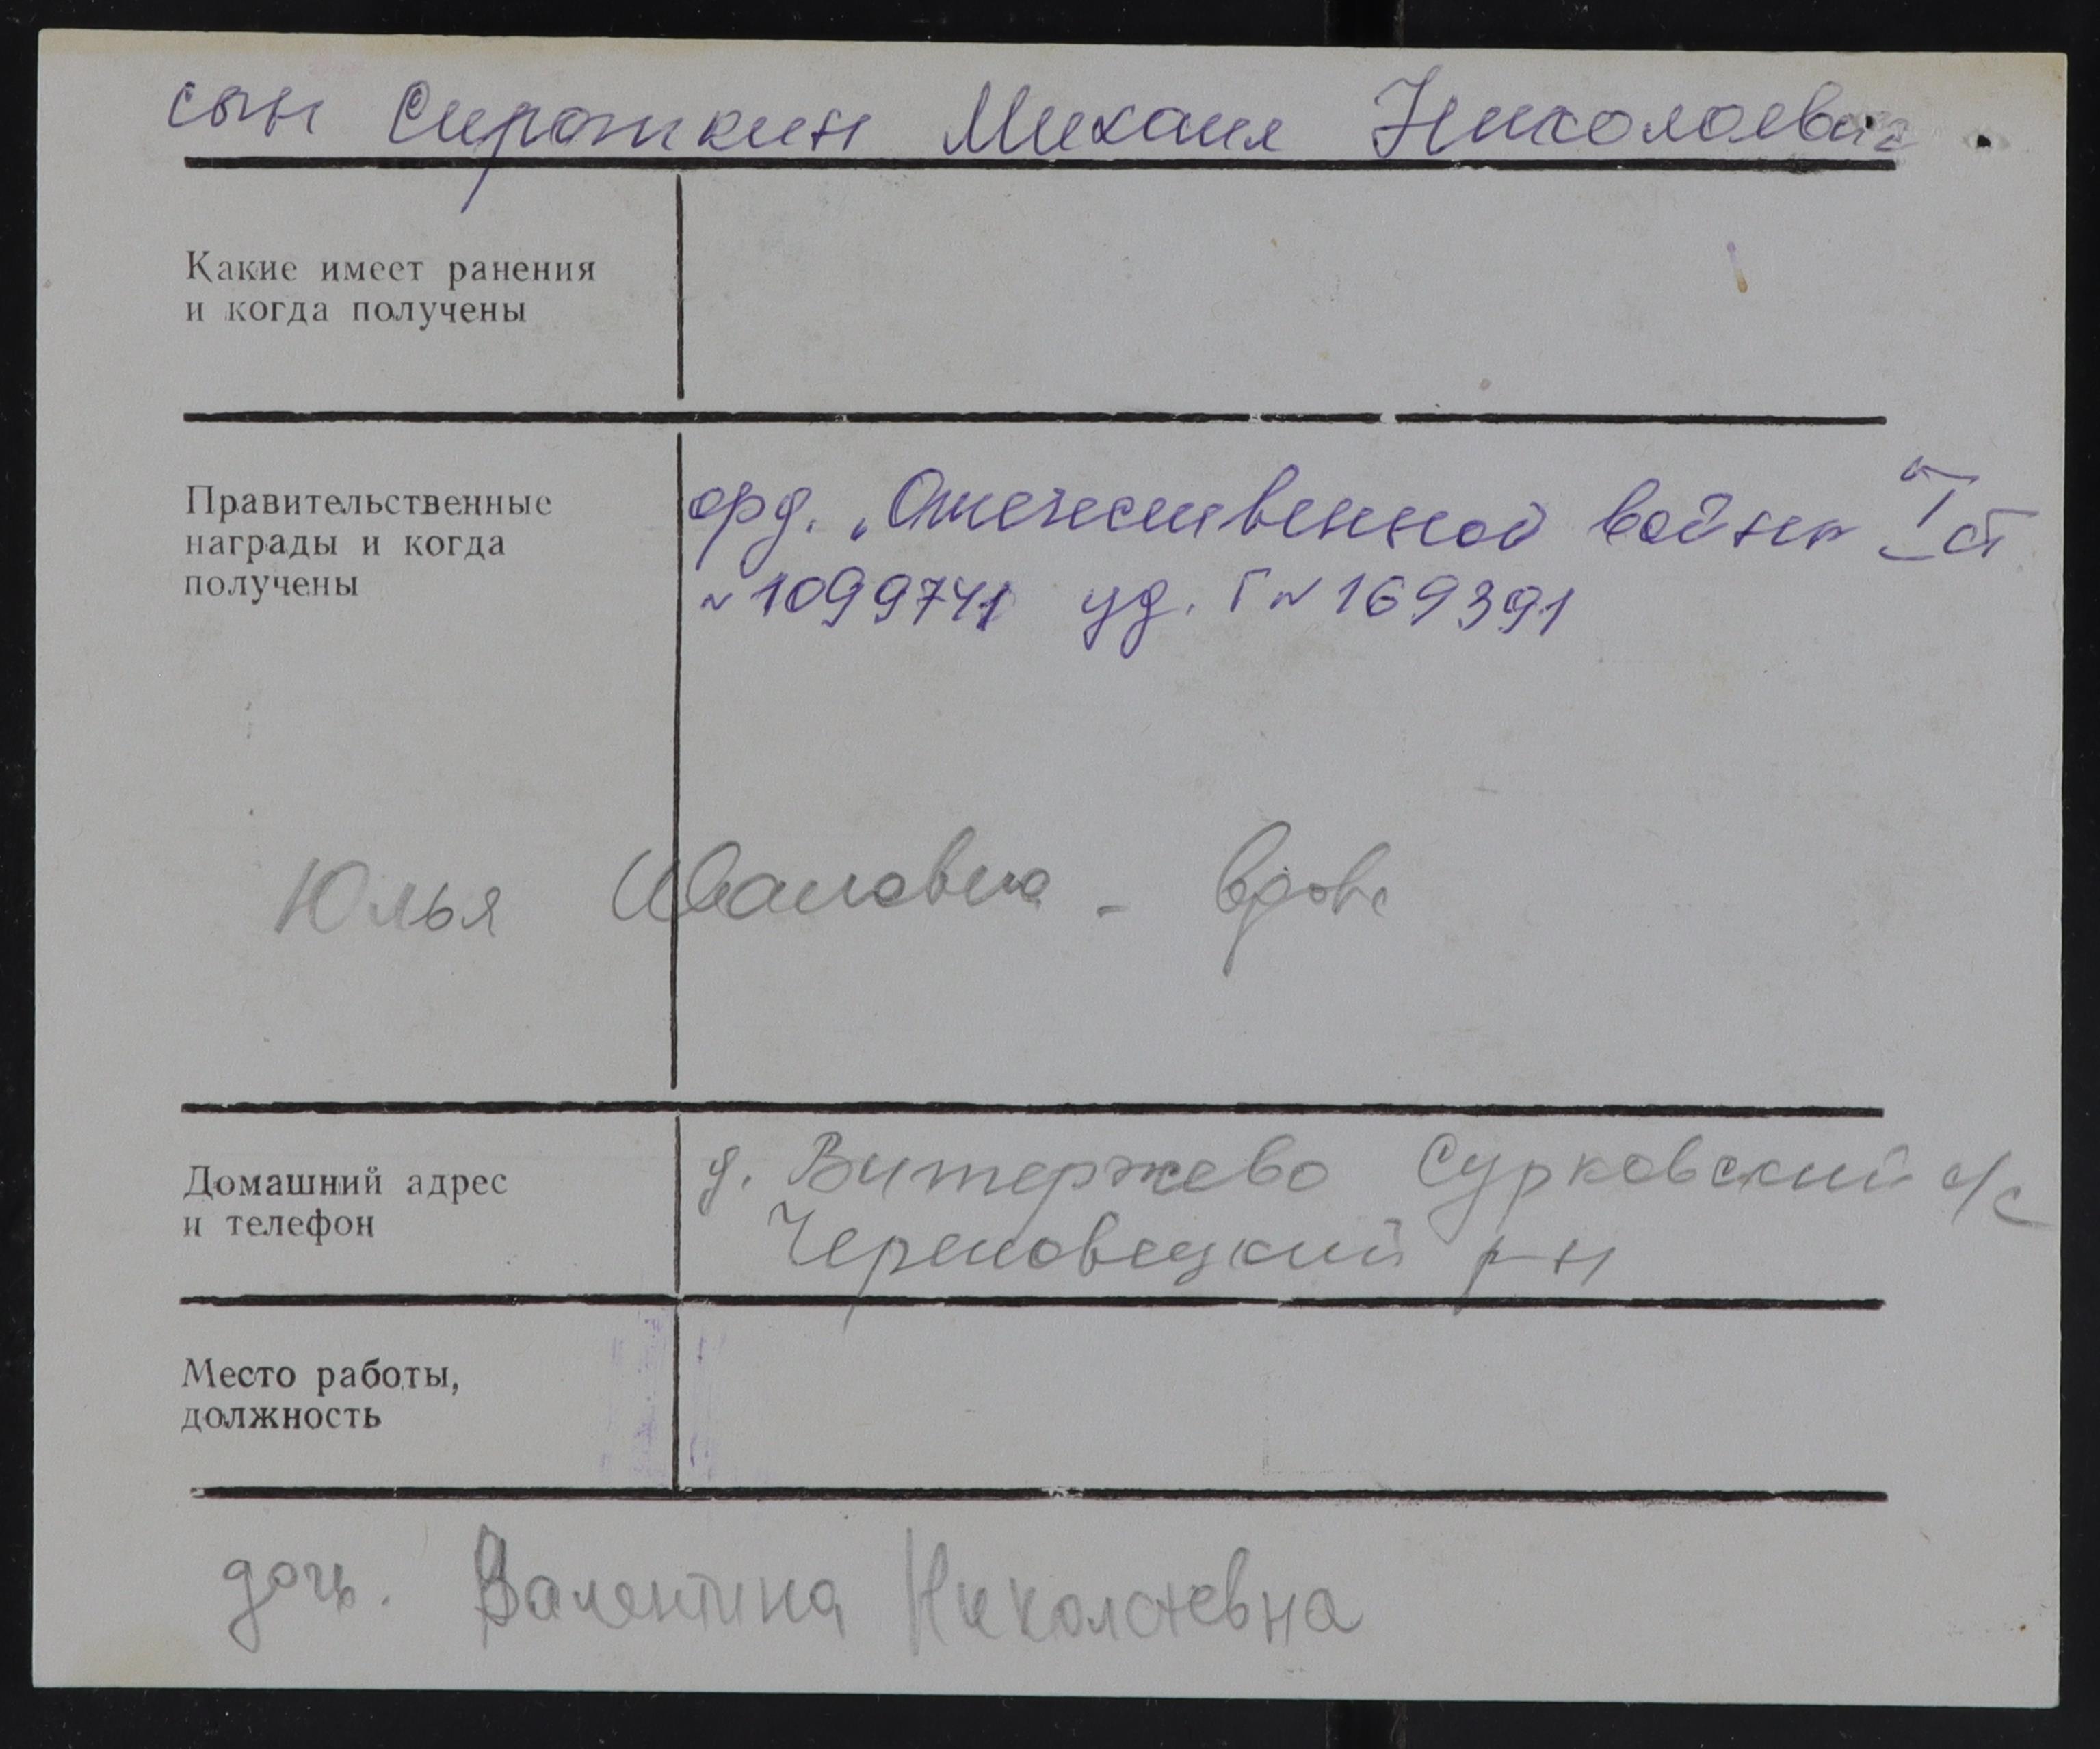 сын Сироткин Михаил Николаевич
Какие имеет ранения
и когда получены
Правительственные
награды и когда
получены
орд. „Отечественной войны I ст
№1099741 уд. Г №169391
Юлья Ивановна - вдова
Домашний адрес
и телефон
д. Витержево Сурковский с/с
Череповецкий р-н
Место работы,
должность
дочь. Валентина Николаевна